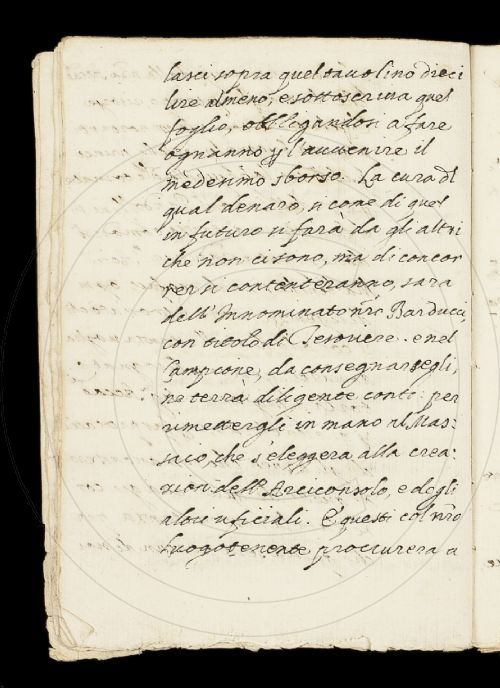 lasci sopra quel tavolino dieci
lire almeno, e sottoscriva quel
foglio, obbligandosi a fare
ognanno p l'avvenire il
medesimo sborso. La cura dl
qual denaro, si come di quel
in futuro si farà da gli altri
che non ci sono, ma di concor
rer si contenteranno, sarà
dell' Innominato nro Barducci,
con titolo di Tesoriere. e nel
Campione, da consegnarsegli,
ne terrà diligente conto: per
rimettergli in mano al Mas:
saio, che s'eleggerà alla crea:
zion dell' Arciconsolo, e degli
altri uficiali. E questi col nro
Luogotenente, proccurerà a